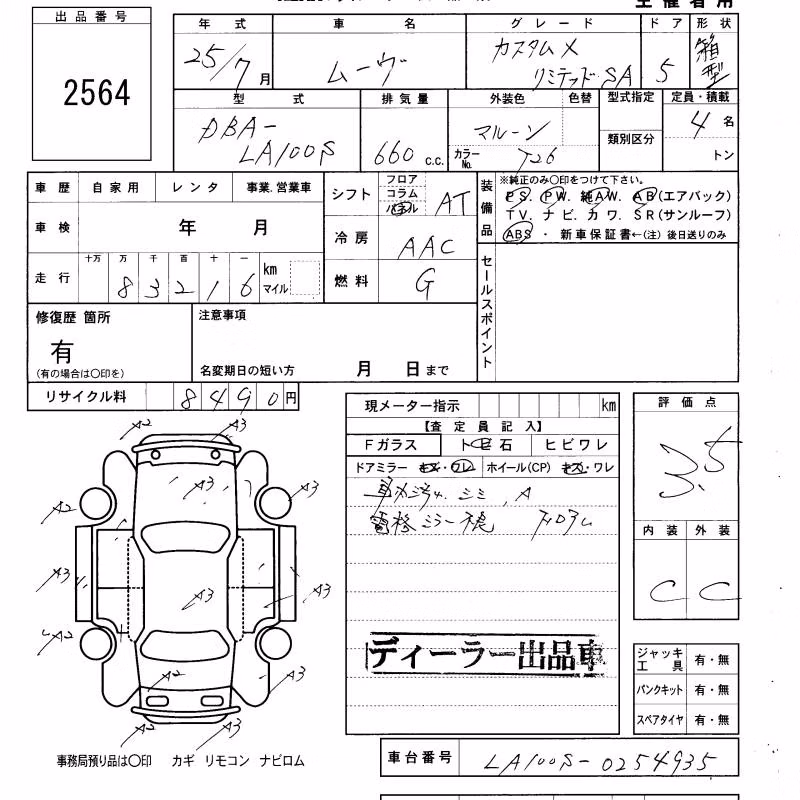 出品番号
2564
年式 車名 グレード ドア 形状
25/7月 ムーヴ カスタムX リミテッドSA 5 箱型
型式 排気量 外装色 色替 型式指定 定員・積載
DBA-LA100S 660 c.c. マルーン 類別区分 4名
カラーNo. T26 トン
車歴 自家用 レンタ 事業.営業車
シフト フロア コラム パネル AT
装備品 ※純正のみ○印をつけて下さい。
PS. PW. 純AW. AB(エアバック)
TV. ナビ. カワ. SR(サンルーフ)
ABS ・ 新車保証書←(注) 後日送りのみ
車検 年 月
冷房 AAC
走行 十万 万 千 百 十 一
83216 km マイル
燃料 G
セールスポイント
修復歴 箇所 注意事項
有
(有の場合は○印を) 名変期日の短い方 月 日まで
リサイクル料 8490円
現メーター指示 km
【査定員記入】
Fガラス トビ石 ヒビワレ
ドアミラー キズ・ワレ ホイール(CP) キズ・ワレ
評価点
3.5
シミ、A
電格ミラー
内装 外装
C C
A2 A3
A3
A2 A3
A3 A3 A3
A2 A2
A3
A2
A3
ディーラー出品車
ジャッキ工具 有・無
パンクキット 有・無
スペアタイヤ 有・無
事務局預り品は○印 カギ リモコン ナビロム
車台番号 LA100S-0254935